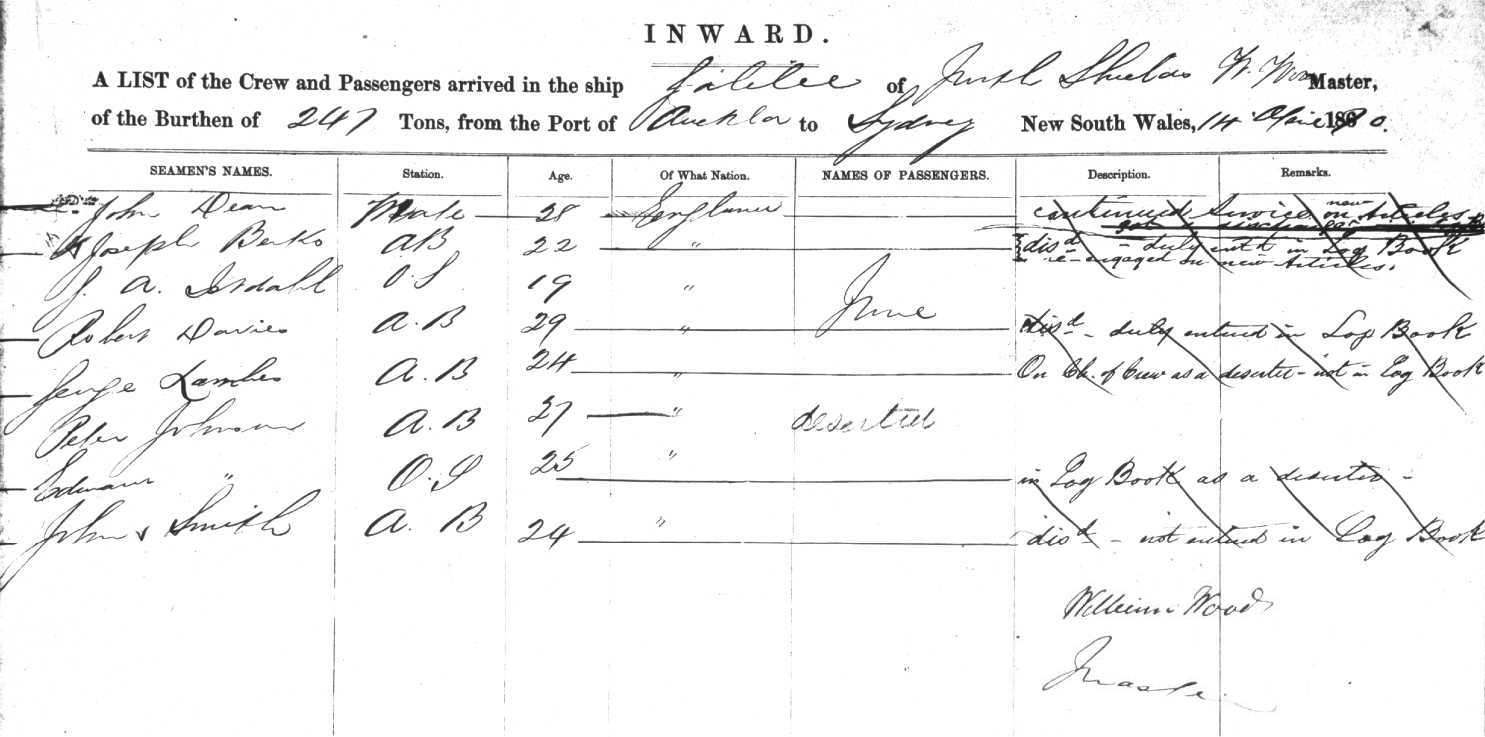 INWARD.
A LIST of the Crew and Passengers arrived in the ship Galilee of North Shields W. Wood Master,
of the Burthen of 247 Tons, from the Port of to Sydney New South Wales, 14 1870.
SEAMEN'S NAMES. Station. Age. Of What Nation. NAMES OF PASSENGERS. Description. Remarks.
John Dean Mate 28 continued Service on new Articles
Joseph Berks AB 22 " disd - duly entd in Log Book
re-engaged on new Articles.
J. A. O S 19 " June
Robert Davies A.B 29 " disd - duly entered in Log Book
George A.B 24 " On of Crew as a deserter - not in Log Book
Peter Johnson A.B 27 " deserted
" O.S 25 " in Log Book as a deserter -
John Smith A. B 24 " disd - not entered in Log Book
William Woods
Master